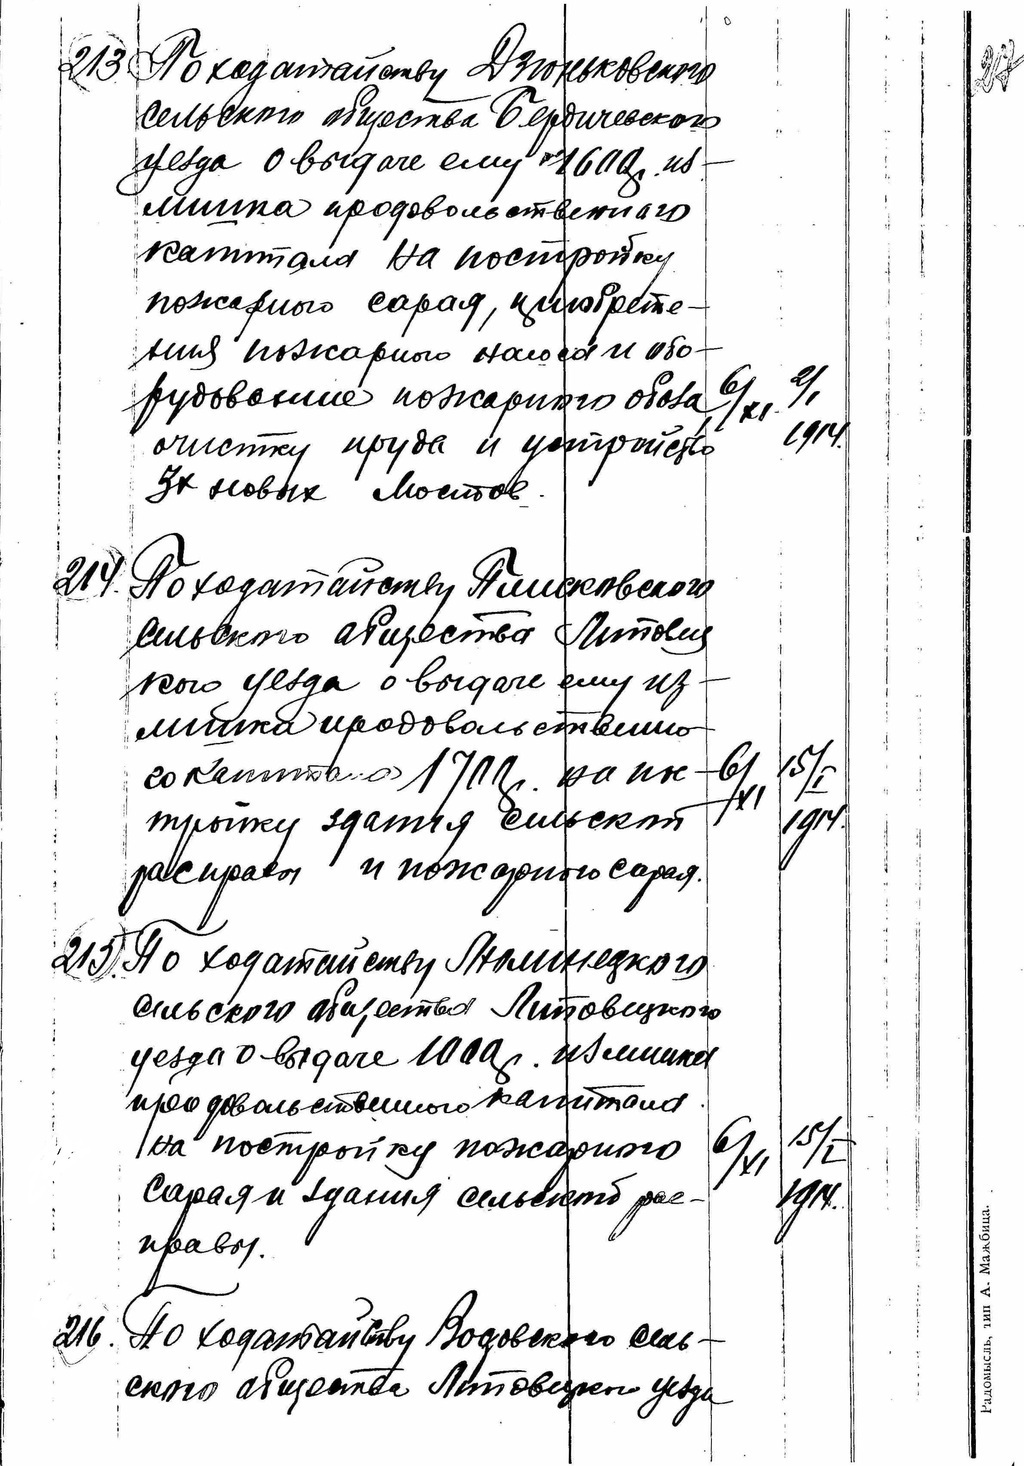 213. По ходатайству Дзюньковского
сельского общества Бердичевского
уезда о выдаче ему 1600 р. из-
лишка продовольственного
капитала на постройку
пожарного сарая, приобрете-
ния пожарного насоса и обо-
рудование пожарного обоза, 6/XI. 2/I 1914.
очистку пруда и устройство
3х новых мостов.
214. По ходатайству Плисковского
сельского общества Липовец
кого уезда о выдаче ему из-
лишка продовольственно
го капитала 1700 р. на пос- 6/XI 15/I 1914.
тройку здания сельской
расправы и пожарного сарая.
215. По ходатайству
сельского общества Липовецкого
уезда о выдаче 1000 р. излишка
продовольственного капитала
на постройку пожарного 6/XI 15/I 1914.
сарая и здания сельской рас-
правы.
216. По ходатайству сель-
ского общества Липовецкого уезда
Радомысль, тип А. Мажбица.